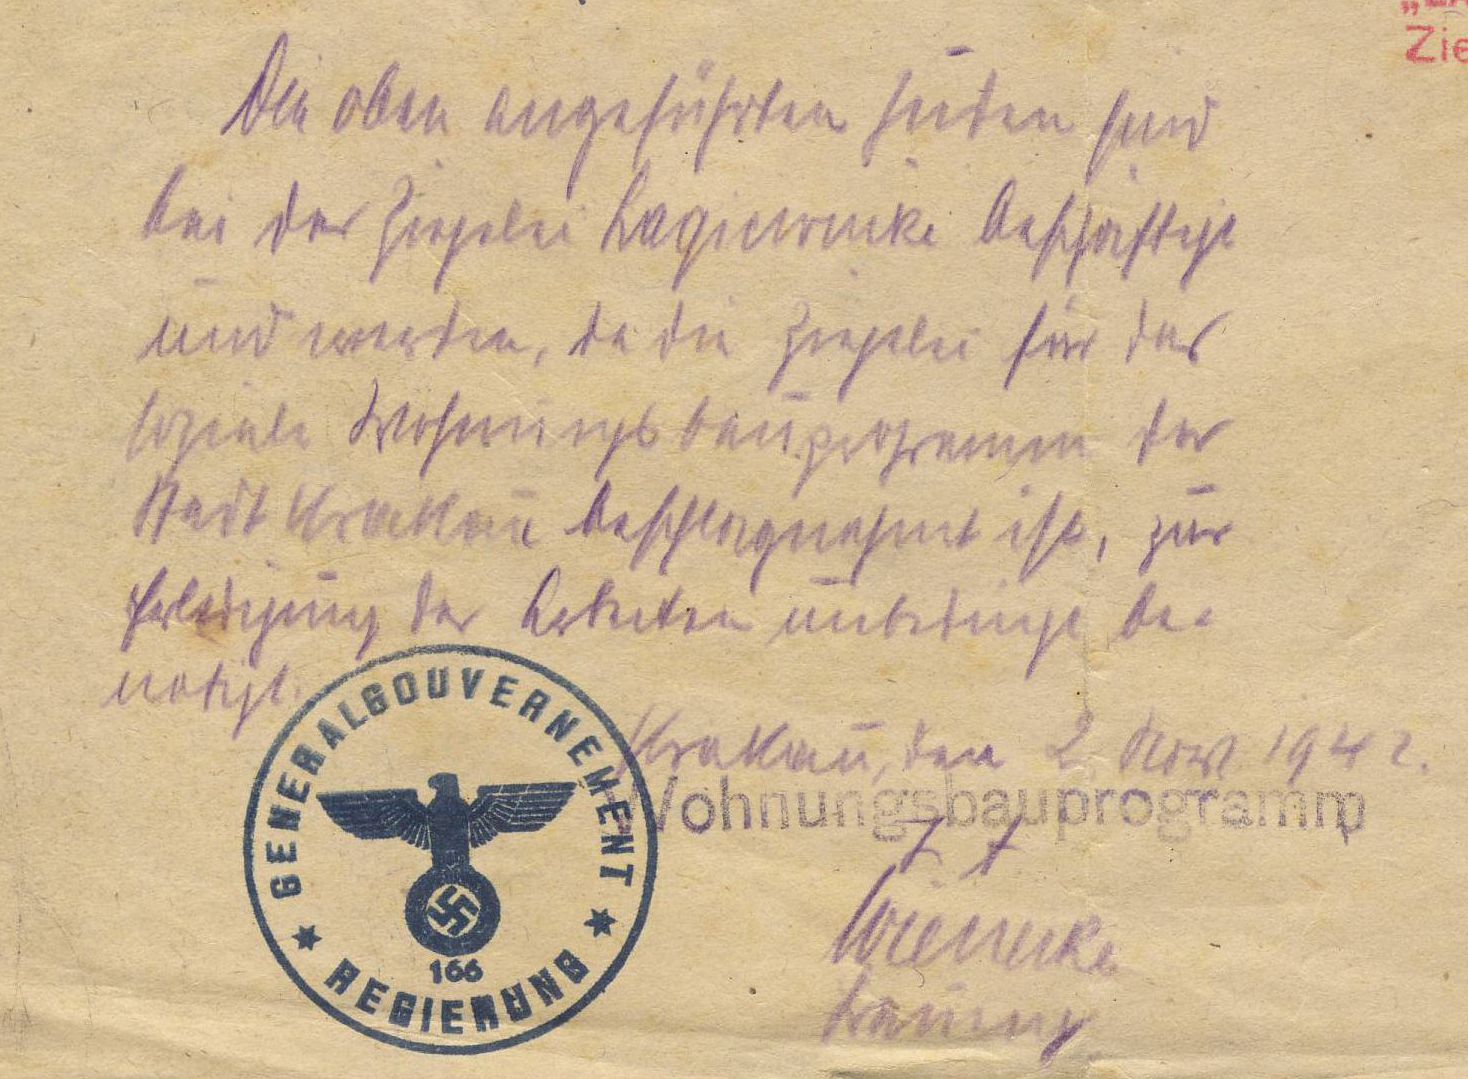 Zie
Die oben angeführten Juden sind
bei der Ziegelei Lagiewniki beschäftigt
und werden, da die Ziegelei für das
soziale Wohnungsbauprogramm der
Stadt Krakau beschlagnahmt ist, zur
Erledigung der Arbeiten unbedingt be-
nötigt.
Krakau, den 2. Nov 1942.
Wohnungsbauprogramm
GENERALGOUVERNEMENT
166
REGIERUNG